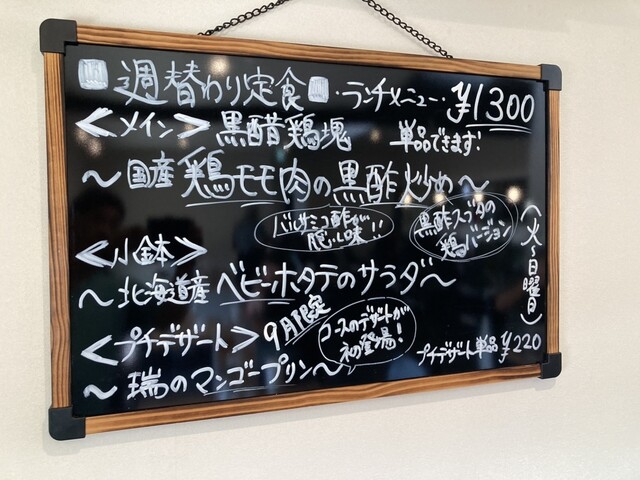 週替わり定食 ・ランチメニュー・ ¥1300
<メイン> 黒醋鶏塊 単品できます!
~国産鶏モモ肉の黒酢炒め~
バルサミコ酢が
隠し味!!
黒酢スブタの
鶏バージョン
(火~日曜日)
<小鉢>
~北海道産ベビーホタテのサラダ~
<プチデザート> 9月限定
コースのデザートが
初登場!
プチデザート単品¥220
~瑞のマンゴープリン~